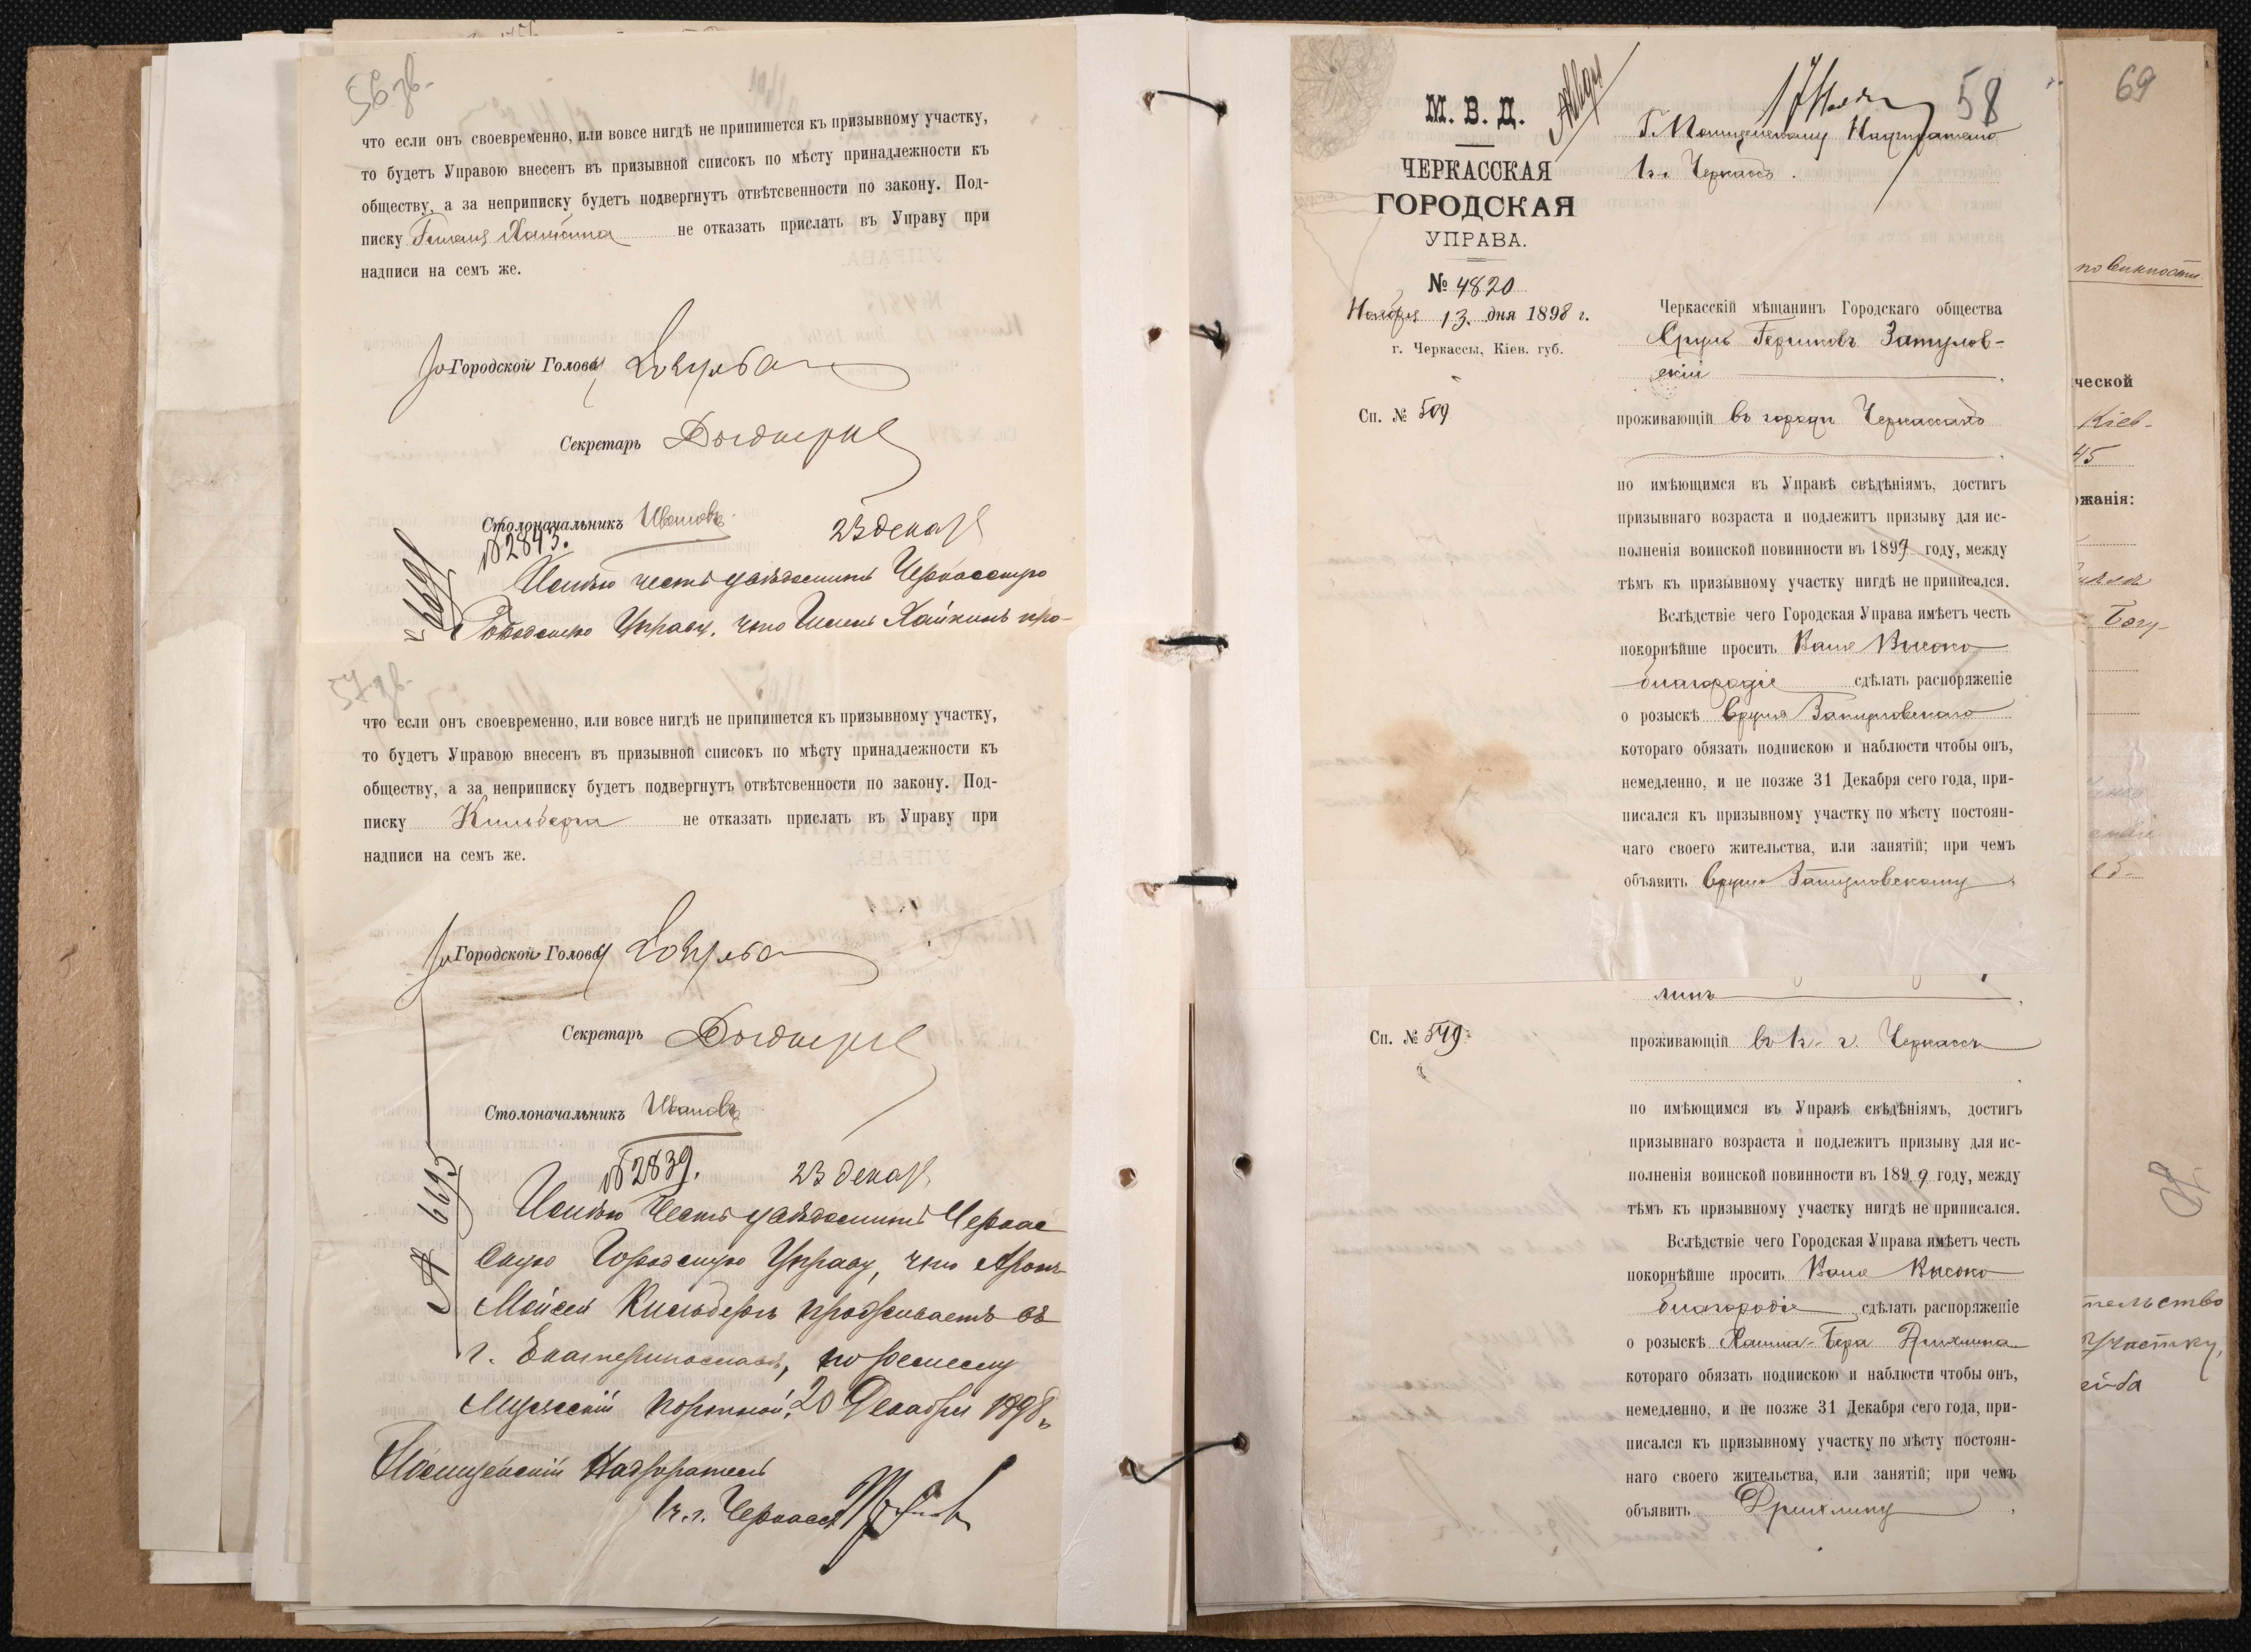 56 зв.
что если онъ своевременно, или вовсе нигдѣ не припишется къ призывному участку,
то будетъ Управою внесенъ въ призывной списокъ по мѣсту принадлежности къ
обществу, а за неприписку будетъ подвергнутъ отвѣтсвенности по закону. Под-
писку Хайкина не отказать прислать въ Управу при
надписи на семъ же.
Городской Головы
Секретарь
Столоначальникъ Ивановъ
№ 2843.
23 декаб
Имѣю честь увѣдомить Черкасскую
Городскую Управу, что Хайкинъ про-
57 зв.
что если онъ своевременно, или вовсе нигдѣ не припишется къ призывному участку,
то будетъ Управою внесенъ въ призывной списокъ по мѣсту принадлежности къ
обществу, а за неприписку будетъ подвергнутъ отвѣтсвенности по закону. Под-
писку Кильберга не отказать прислать въ Управу при
надписи на семъ же.
Городской Головы
Секретарь
Столоначальникъ Ивановъ
№ 2839. 23 декаб
6695
Имѣю честь увѣдомить Черкас
скую Городскую Управу, что Аронъ
Мойсей Кильбергъ проживаетъ въ
г. Екатеринославѣ, по ремеслу
Мужескій портной, 20 Декабря 1898 г.
Полицейскій Надзиратель
1 ч. г. Черкассъ
58
М. В. Д.
ЧЕРКАССКАЯ
ГОРОДСКАЯ
УПРАВА.
№ 4820
Ноября 13 дня 1898 г.
г. Черкассы, Кіев. губ.
Сп. № 509
Г. Полицейскому Надзирателю
1 ч. г. Черкассъ.
Черкасскій мѣщанинъ Городскаго общества
Сруль Гершковъ Затулов-
скій
проживающій въ городѣ Черкассахъ
по имѣющимся въ Управѣ свѣдѣніямъ, достигъ
призывнаго возраста и подлежитъ призыву для ис-
полненія воинской повинности въ 1899 году, между
тѣмъ къ призывному участку нигдѣ не приписался.
Вслѣдствіе чего Городская Управа имѣетъ честь
покорнѣйше просить Ваше Высоко
благородіе сдѣлать распоряженіе
о розыскѣ Сруля Затуловскаго
котораго обязать подпискою и наблюсти чтобы онъ,
немедленно, и не позже 31 Декабря сего года, при-
писался къ призывному участку по мѣсту постоян-
наго своего жительства, или занятій; при чемъ
объявить Срулю Затуловскому
линъ
Сп. № 549
проживающій въ 1 ч. г. Черкассъ
по имѣющимся въ Управѣ свѣдѣніямъ, достигъ
призывнаго возраста и подлежитъ призыву для ис-
полненія воинской повинности въ 1899 году, между
тѣмъ къ призывному участку нигдѣ не приписался.
Вслѣдствіе чего Городская Управа имѣетъ честь
покорнѣйше просить Ваше Высоко
благородіе сдѣлать распоряженіе
о розыскѣ Хаима-Бера Дрихлина
котораго обязать подпискою и наблюсти чтобы онъ,
немедленно, и не позже 31 Декабря сего года, при-
писался къ призывному участку по мѣсту постоян-
наго своего жительства, или занятій; при чемъ
объявить Дрихлину
69
повинности.
ческой
Кіев-
45
жанія:
Богу-
тельство
участку,